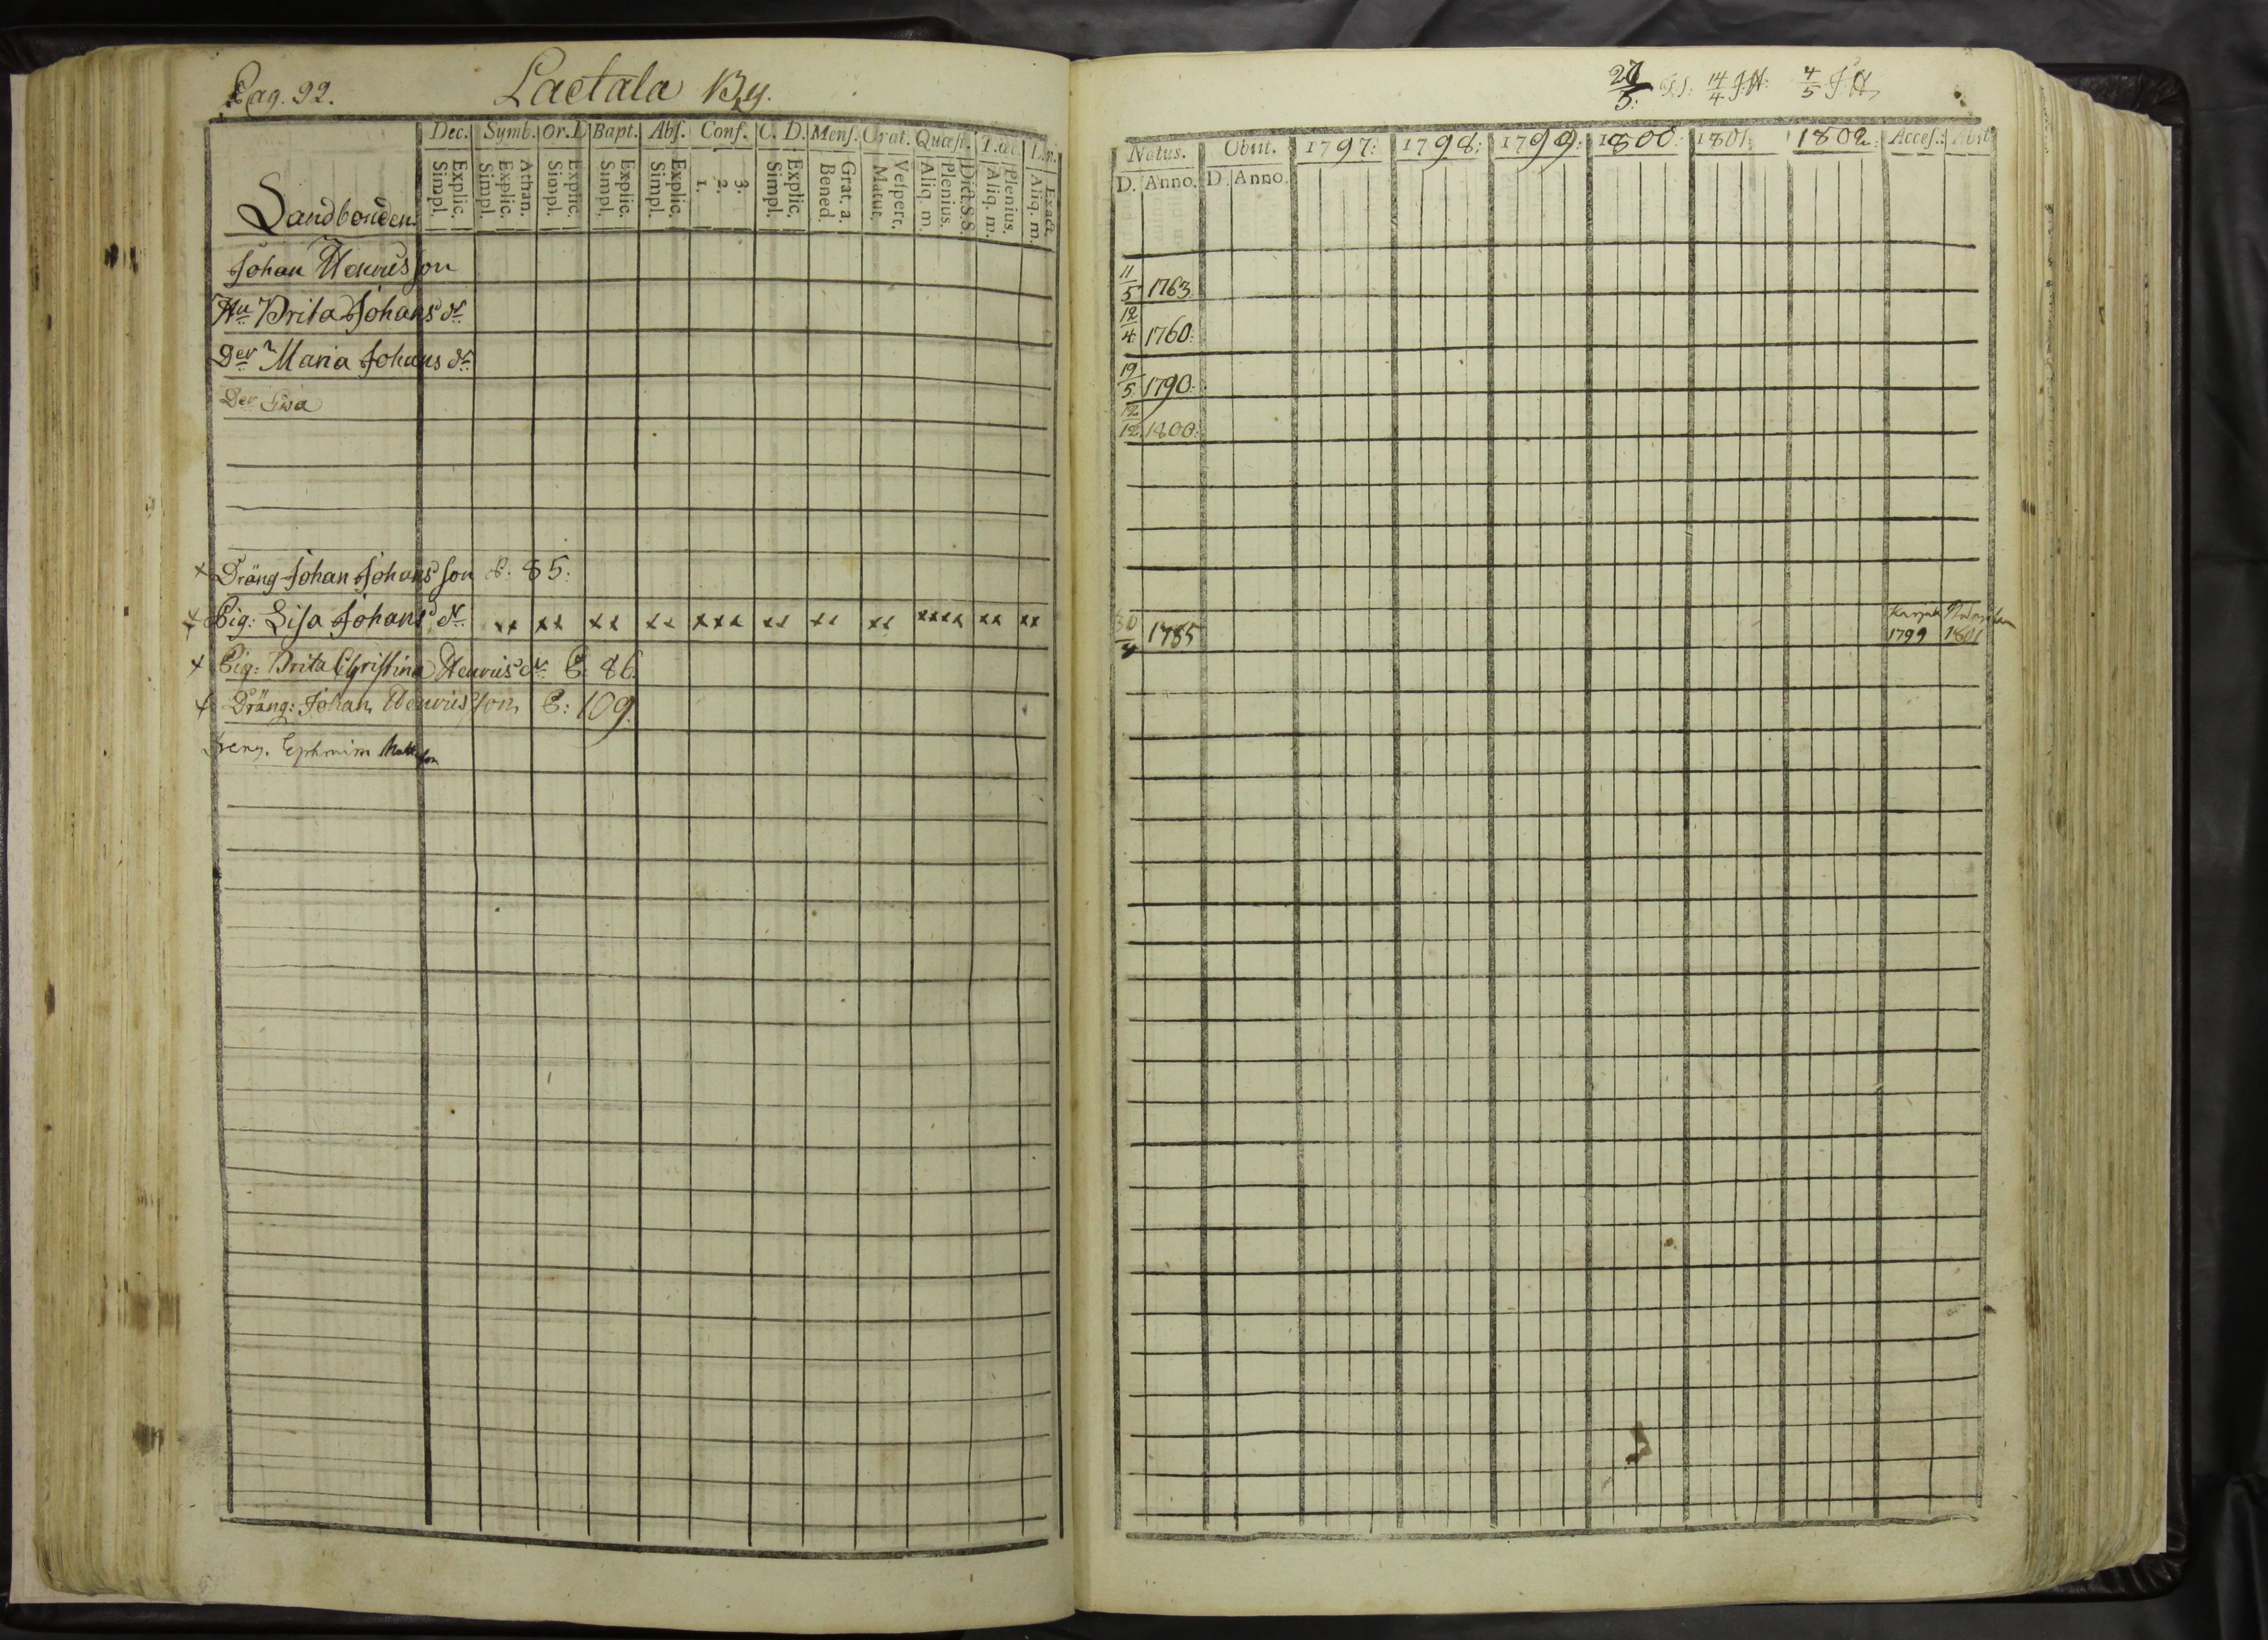 Pag. 92. Lactala By.
Dec. Symb. Or. D Bapt. Abſ. Conf. C. D. Menſ. Orat. Quæſt. T. œc.
Explic. Simpl. Athan. Explic. Simpl. Explic. Simpl. Explic. Simpl. Explic. Simpl. 3. 2. 1. Explic. Simpl. Grat. a. Bened. Veſpert. Matut. Dict. S.S. Plenius. Aliq. m. Plenius. Aliq. m. Exacte Aliq. m.
Landbonden
Johan Henrisſon
Hu Brita Johans dr
Der Maria Johans dr
Der Lisa
x Dräng Johan Johansſon P. 85:
x Pig: Liſa Johans dr xx xx xx xx xxx xx xx xx xxxx xx xx
x Pig: Brita Chriſtina Henris dr P. 86.
x Dräng: Johan Henrisſon P: 109.
Dreng. Ephraim Mattsſon
27/3. 14/4 J.H. 4/5 J.H.
Natus. Obiit. 1797: 1798: 1799: 1800: 1801: 1802. Acceſ.: Abit
D. Anno. D. Anno.
11/5 1763.
12/4 1760:
19/5 1790.
12/12 1800:
30/4 1785 1799 1801